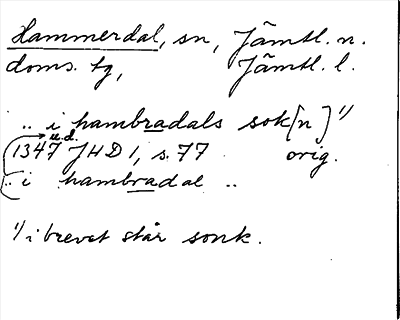 Hammerdal, sn, Jämtl. n.
doms. tg, Jämtl. l.
.. i hambradals sok[n]¹⁾
u.d.
1347 JHD 1, s. 77 orig.
.. i hambradal ..
¹⁾ i brevet står sonk.